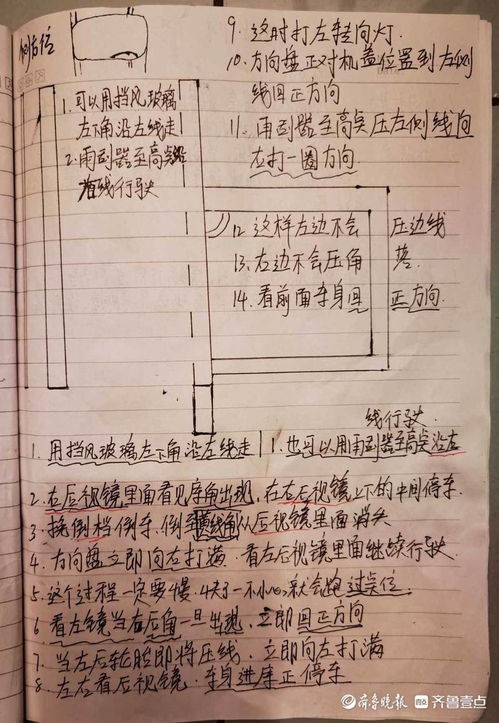 侧方位
9. 这时打左转向灯.
10. 方向盘正对机盖位置到左侧
线回正方向
11. 雨刮器至高点压左侧线向
左打一圈方向
1. 可以用挡风玻璃
左下角沿左线走
2. 雨刮器至高点沿
左线行驶
12. 这样左边不会 压边线
13. 右边不会压角 落.
14. 看前面车身回 正方向.
线行驶.
1. 用挡风玻璃左下角沿左线走 1. 也可以用雨刮器至高点沿左
2. 右后视镜里面看见库角出现, 在右后视镜上下的中间停车.
3. 挽倒档倒车. 倒至横线角从后视镜里面消失
4. 方向盘立即向右打满. 看左后视镜里面继续行驶.
5. 这个过程一定要慢. 快了一不小心就会跑过头位.
6. 看左镜当右后角一旦出现, 立即回正方向
7. 当左后轮胎即将压线. 立即向左打满
8. 左右看后视镜. 车身进库正停车
齐鲁晚报 齐鲁壹点